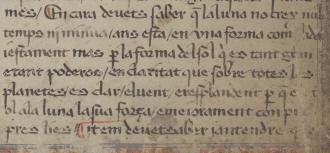 mes / Encara deuets saber q̄ la luna no crex ne nul
temps ni minua / ans esta / en vna forma com
iestament mes per la forma del sol q̄ es tant gran
etant poderos / en claritat que sobre totes les
planetes es clar / eluent eresplandent per que
bla la luna la sua força / emeiorament con pl
pres li es Item deuet saber iantendre q